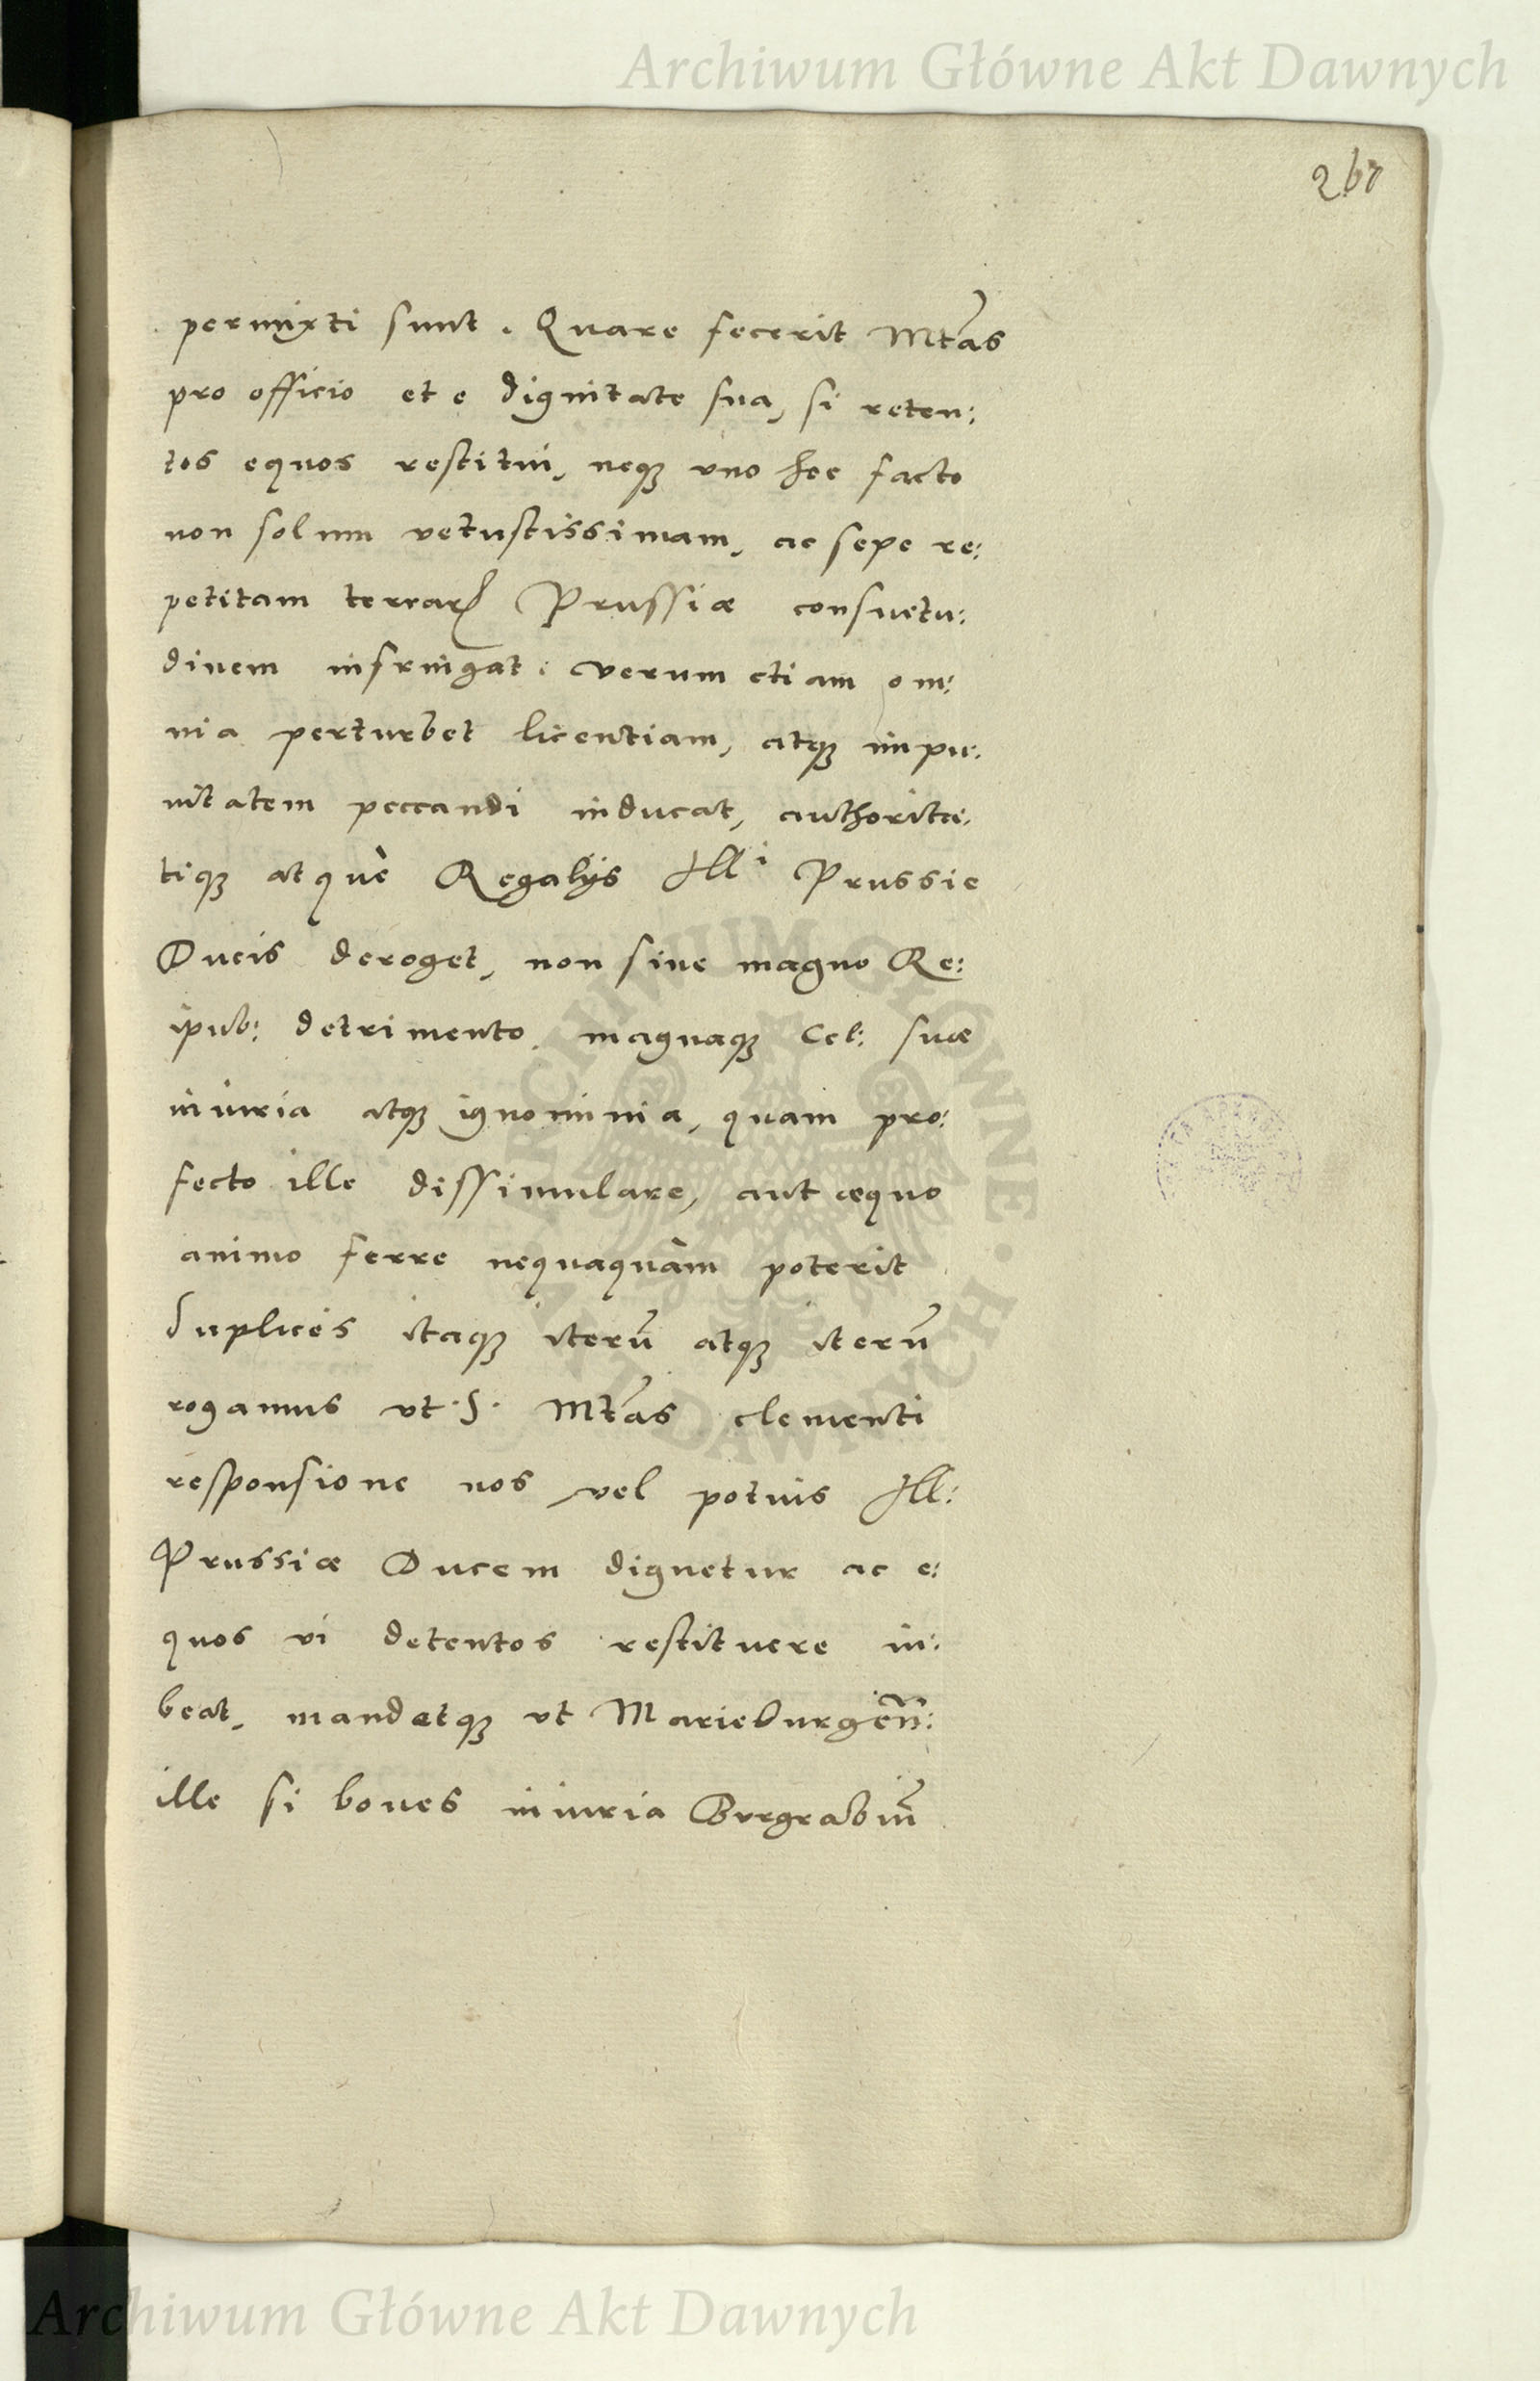 Archiwum Główne Akt Dawnych
267
permixti sunt. Quare fecerit Mtas
pro officio et e dignitate sua, si reten:
tos equos restitui, neq3 vno hoc facto
non solum vetustissimam, ac sepe re:
petitam terrarꝝ Prussiæ consuetu:
dinem infringat: verum etiam om:
nia perturbet licentiam, atq3 impu:
nitatem peccandi inducat, authorita:
tiq3 atque Regalijs Illi Prussie
Ducis deroget, non sine magno Re:
ipub: detrimento, magnaq3 Cel: suæ
iniuria atq3 ignominia, quam pro:
fecto ille dissimulare, aut æquo
animo ferre nequaquàm poterit
Suplices itaq3 iterū atq3 iterū
rogamus vt S. Mtas clementi
responsione nos vel potius Ill:
Prussiæ Ducem dignetur ac e:
quos vi detentos restituere iu:
beat, mandetq3 vt Marieburgeñ:
ille si boues iniuria Burgrabiū
ARCHIWUM GŁÓWNE AKT DAWNYCH
Archiwum Główne Akt Dawnych